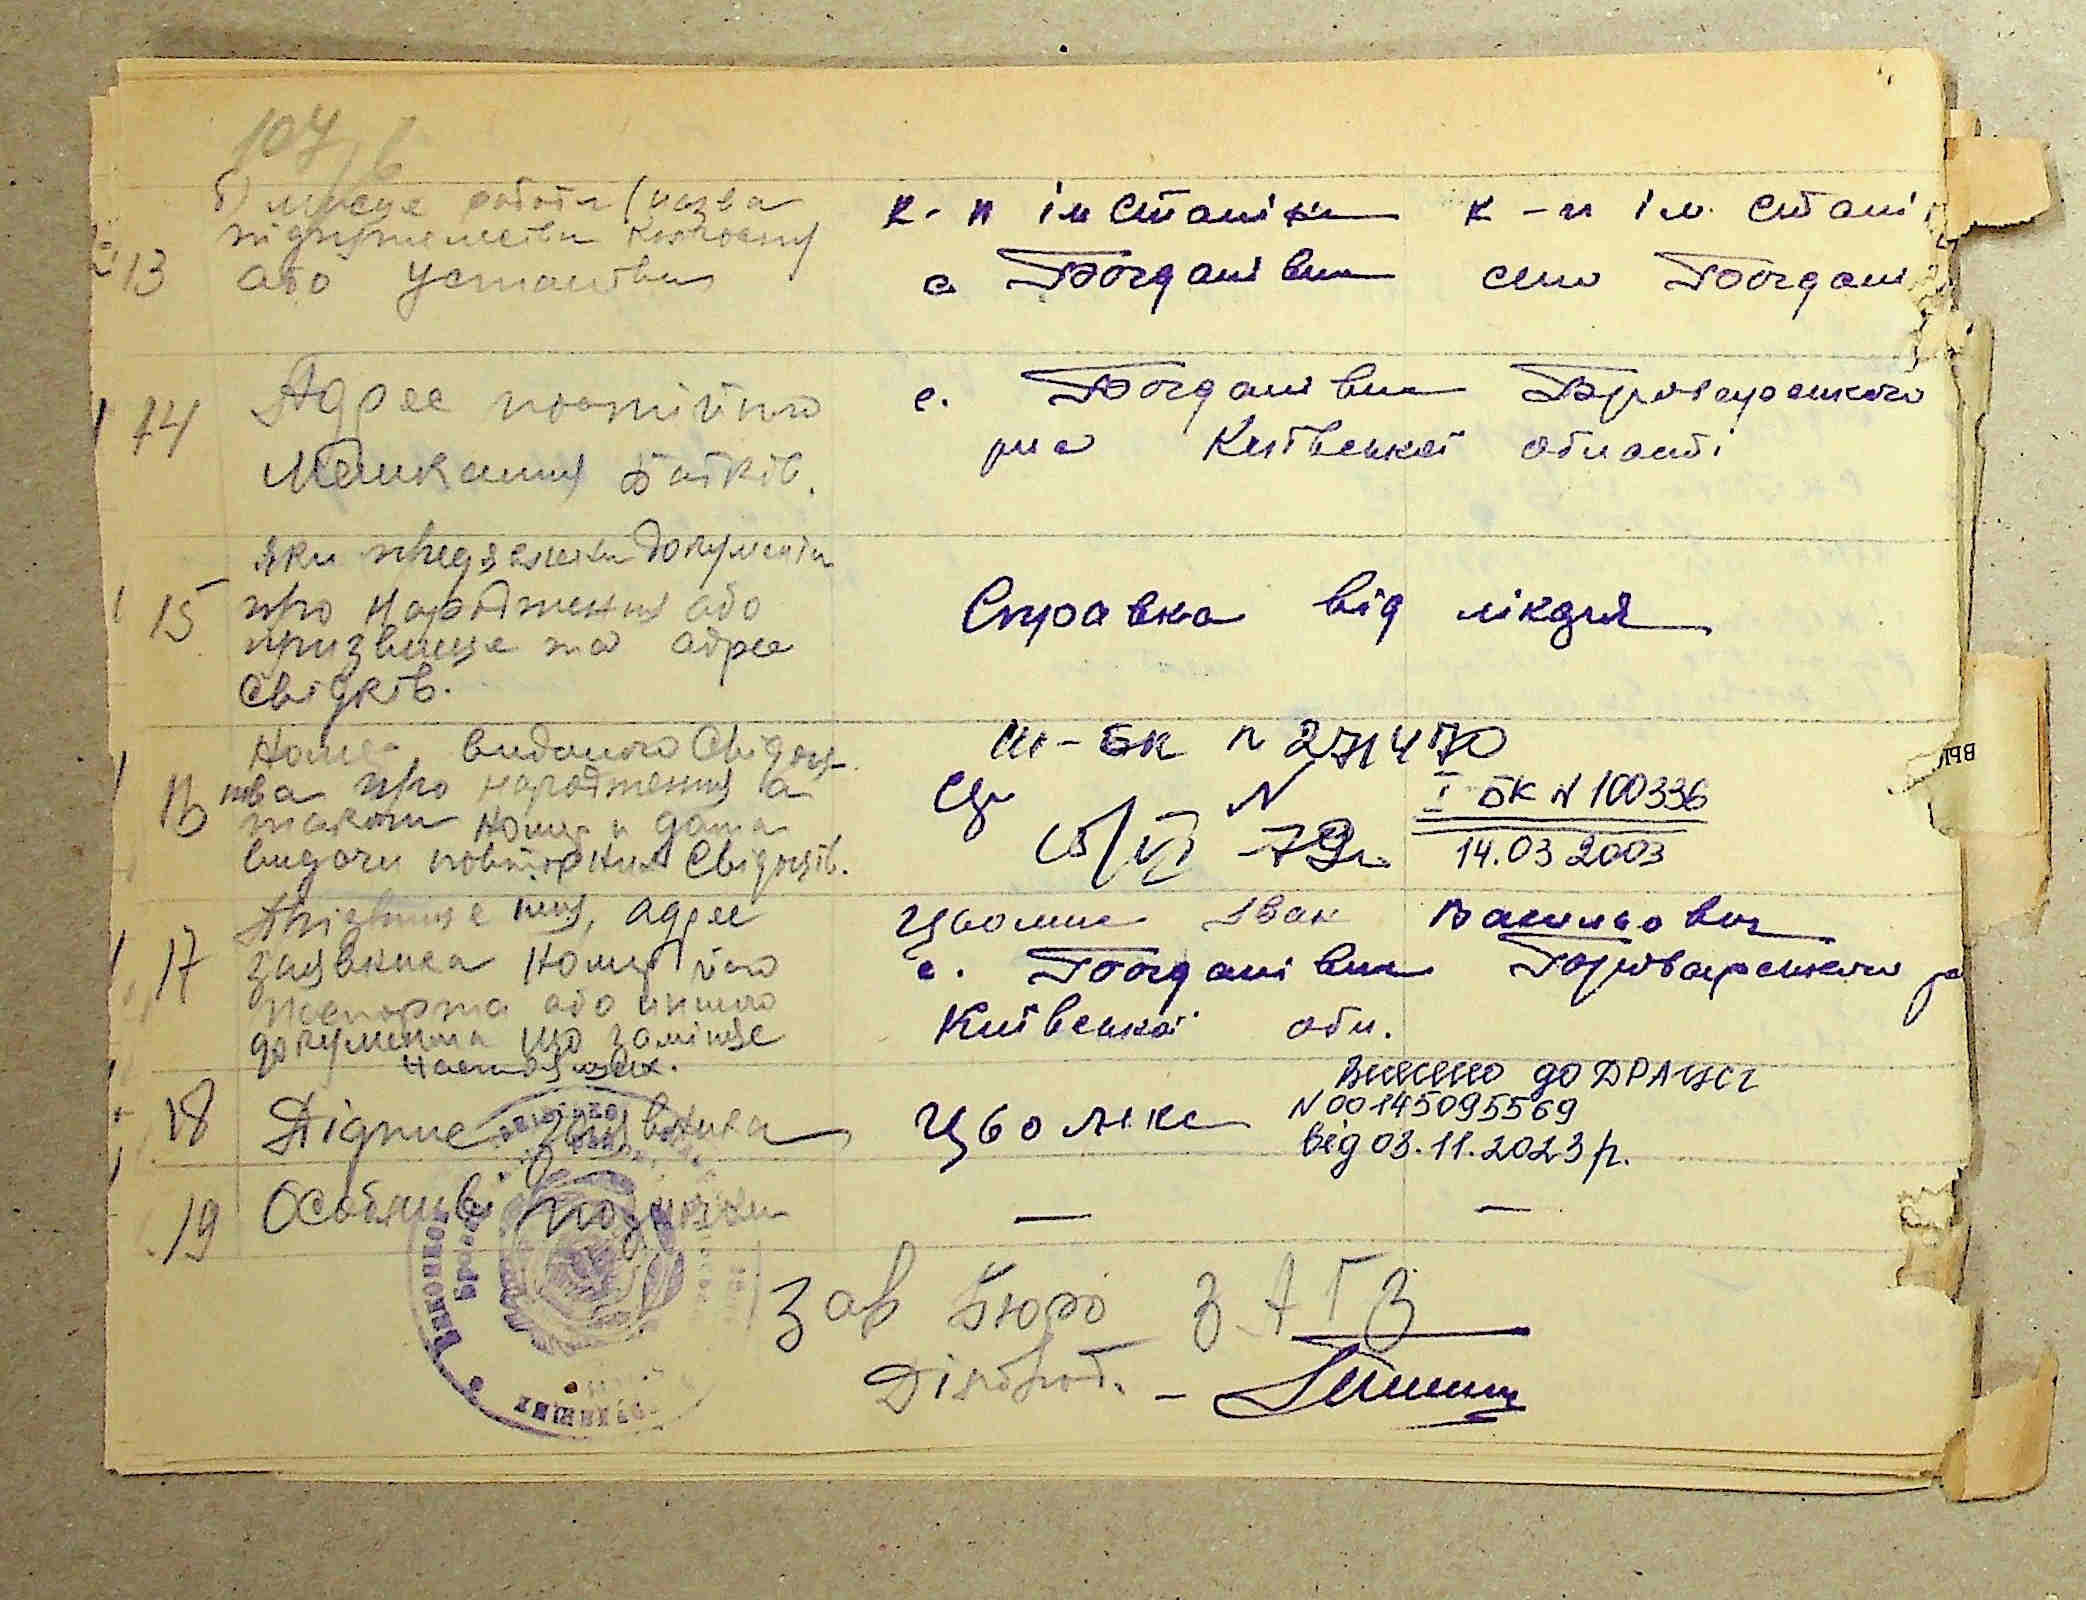 107
б) місце роботи (назва
підприємства колгоспу
13 або установи
к-п ім Сталіна к-п ім. Сталі
с Богданівка село Богдані
14 Адрес постійного
мешкання батків.
с. Богданівка Броварського
р-на Київської області
15 яки предявлени документи
про народження або
призвище та адрес
свідків.
Справка від лікаря
16 Номер виданого Свідоц-
тва про народження а
також номер и дата
видачи повторних Свідоцтв.
III-БК N 271470
N
15/VI 79г.
I БК N 100336
14.03 2003
17 Призвище імя, адрес
заявника номер його
паспорта або иншого
документа що заміняе
Цьомка Іван Васильович
с. Богданівка Броварського р
Київської обл.
Настоящих.
18 Підпис заявника
Цьомка
Внесено до ДРАЦСг
N 00145095569
від 03.11.2023 р.
19 Особливі познаки
— —
Зав Бюро ЗАГЗ
Діловод. -